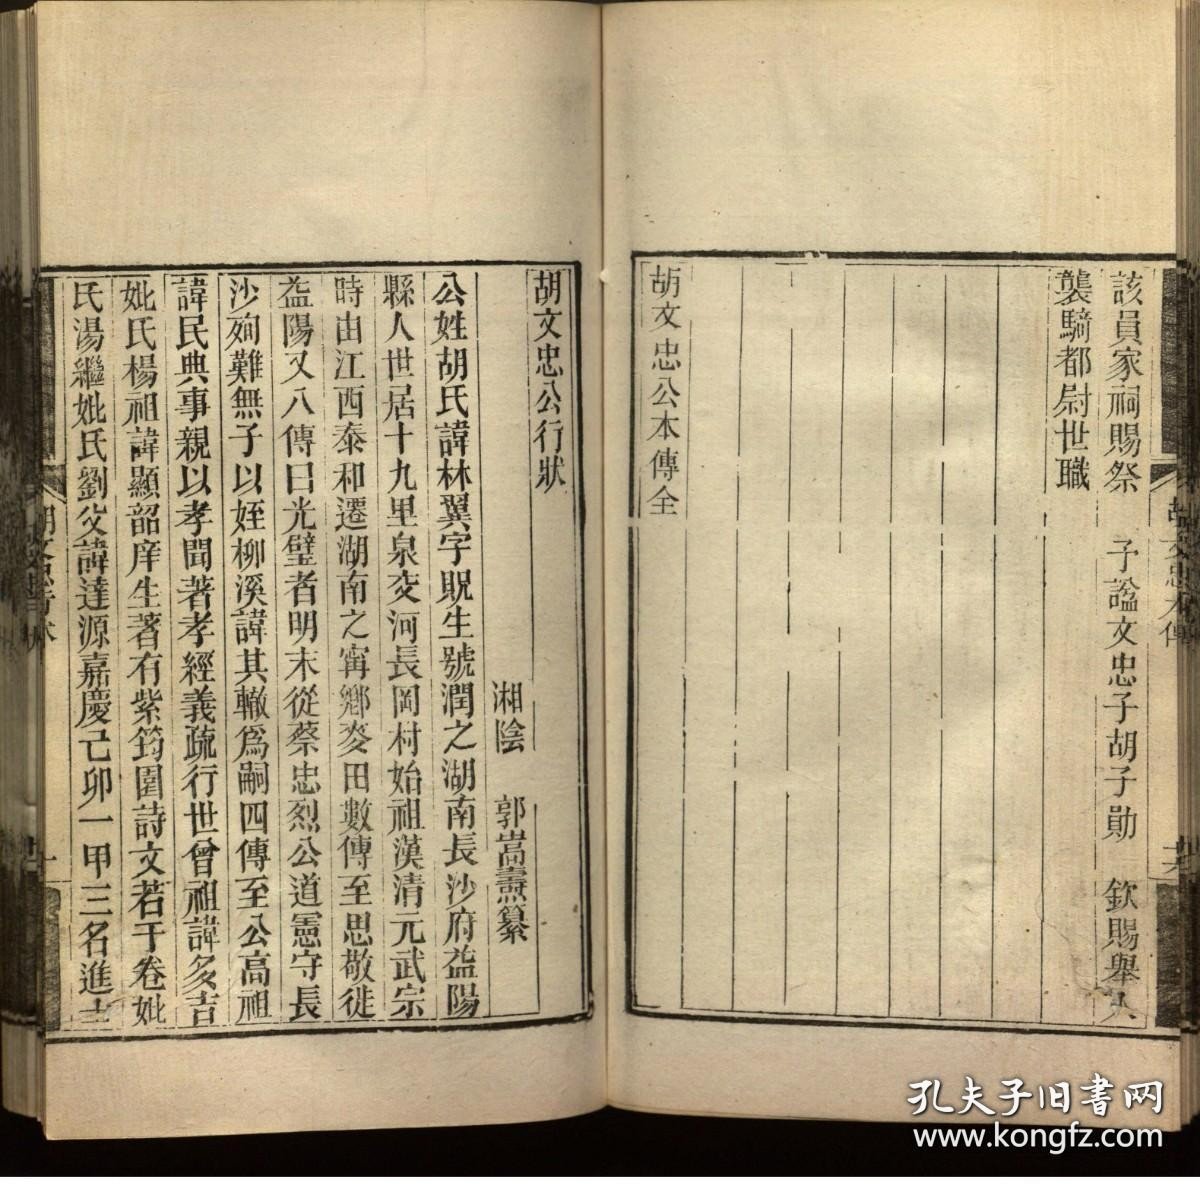 該員家祠賜祭　予諡文忠子胡子勛　欽賜舉人
襲騎都尉世職
胡文忠公本傳全
胡文忠公行狀
湘陰　郭嵩燾纂
公姓胡氏諱林翼字貺生號潤之湖南長沙府益陽
縣人世居十九里泉交河長岡村始祖漢清元武宗
時由江西泰和遷湖南之甯鄉麥田數傳至思敬徙
益陽又八傳曰光璧者明末從蔡忠烈公道憲守長
沙殉難無子以姪柳溪諱其轍爲嗣四傳至公高祖
諱民典事親以孝聞著孝經義疏行世曾祖諱多吉
妣氏楊祖諱顯韶庠生著有紫筠園詩文若干卷妣
氏湯繼妣氏劉父諱達源嘉慶己卯一甲三名進士
孔夫子旧书网
www.kongfz.com